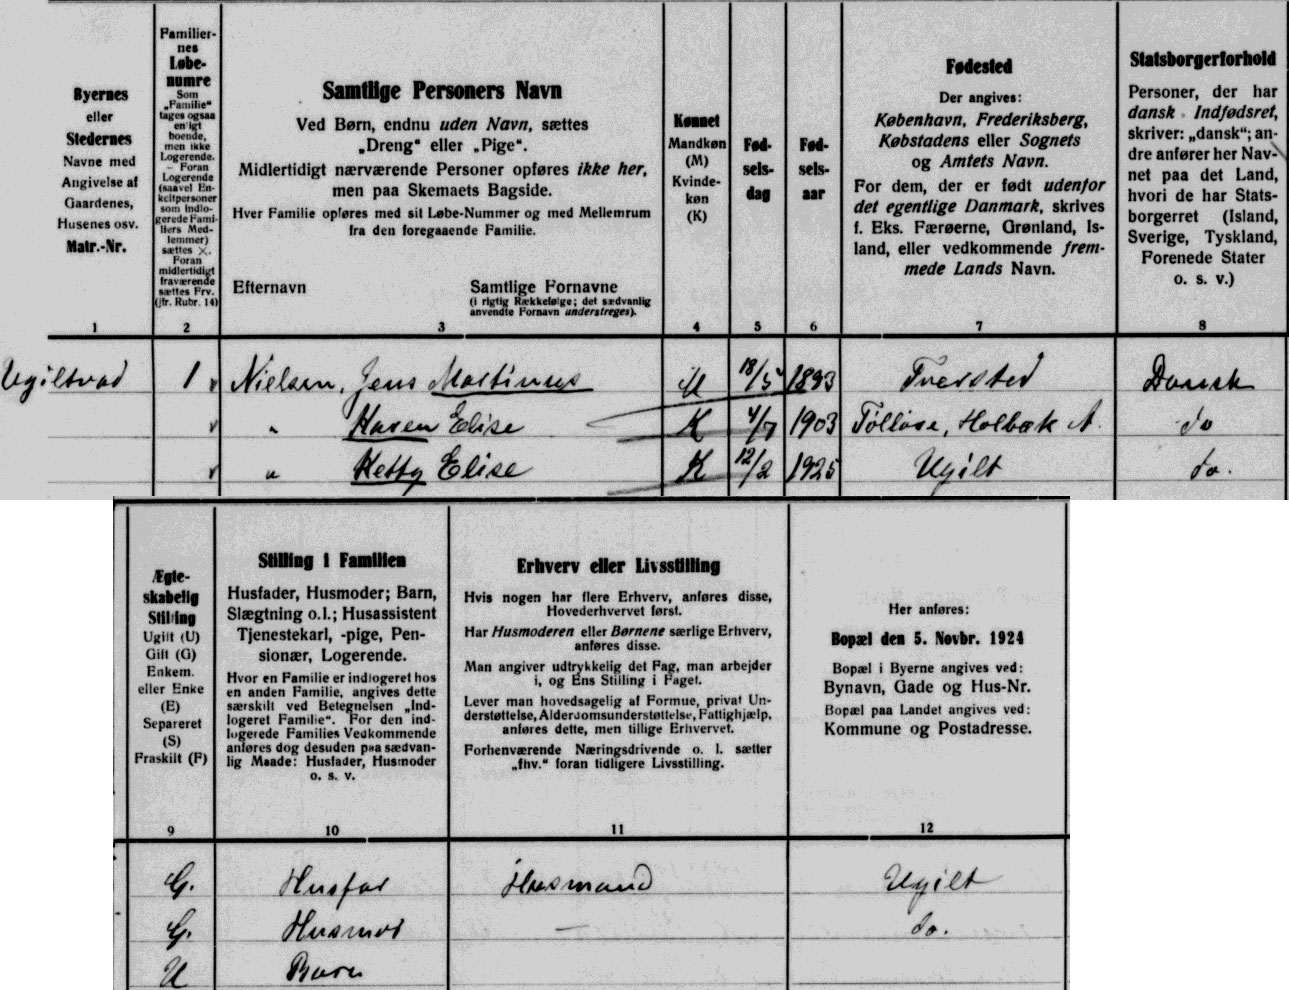 Byernes
eller
Stedernes
Navne med
Angivelse af
Gaardenes,
Husenes osv.
Matr.-Nr.
1
Familier-
nes
Løbe-
numre
Som
„Familie“
tages ogsaa
en igt
boende,
men ikke
Logerende.
– Foran
Logerende
(saavel En-
keltpersoner
som indlo-
gerede Fami-
liers Med-
lemmer)
sættes ×.
Foran
midlertidigt
fraværende
sættes Frv.
(jfr. Rubr. 14)
2
Samtlige Personers Navn
Ved Børn, endnu uden Navn, sættes
„Dreng“ eller „Pige“.
Midlertidigt nærværende Personer opføres ikke her,
men paa Skemaets Bagside.
Hver Familie opføres med sit Løbe-Nummer og med Mellemrum
fra den foregaaende Familie.
Efternavn Samtlige Fornavne
(i rigtig Rækkefølge; det sædvanlig
anvendte Fornavn understreges).
3
Kønnet
Mandkøn
(M)
Kvinde-
køn
(K)
4
Fød-
sels-
dag
5
Fød-
sels-
aar
6
Fødested
Der angives:
København, Frederiksberg,
Købstadens eller Sognets
og Amtets Navn.
For dem, der er født udenfor
det egentlige Danmark, skrives
f. Eks. Færøerne, Grønland, Is-
land, eller vedkommende frem-
mede Lands Navn.
7
Statsborgerforhold
Personer, der har
dansk Indfødsret,
skriver: „dansk“; an-
dre anfører her Nav-
net paa det Land,
hvori de har Stats-
borgerret (Island,
Sverige, Tyskland,
Forenede Stater
o. s. v.)
8
Ugiltvad 1 v Nielsen, Jens Martinus M 18/5 1893 Tversted Dansk
v " Karen Elise K 4/7 1903 Tølløse, Holbæk A. do
v " Ketty Elise K 12/2 1925 Ugilt do.
Ægte-
skabelig
Stilling
Ugift (U)
Gift (G)
Enkem.
eller Enke
(E)
Separeret
(S)
Fraskilt (F)
9
Stilling i Familien
Husfader, Husmoder; Barn,
Slægtning o.l.; Husassistent
Tjenestekarl, -pige, Pen-
sionær, Logerende.
Hvor en Familie er indlogeret hos
en anden Familie, angives dette
særskilt ved Betegnelsen „Ind-
logeret Familie“. For den ind-
logerede Families Vedkommende
anføres dog desuden paa sædvan-
lig Maade: Husfader, Husmoder
o. s. v.
10
Erhverv eller Livsstilling
Hvis nogen har flere Erhverv, anføres disse,
Hovederhvervet først.
Har Husmoderen eller Børnene særlige Erhverv,
anføres disse.
Man angiver udtrykkelig det Fag, man arbejder
i, og Ens Stilling i Faget.
Lever man hovedsagelig af Formue, privat Un-
derstøttelse, Alderdomsunderstøttelse, Fattighjælp,
anføres dette, men tillige Erhvervet.
Forhenværende Næringsdrivende o. l. sætter
„fhv.“ foran tidligere Livsstilling.
11
Her anføres:
Bopæl den 5. Novbr. 1924
Bopæl i Byerne angives ved:
Bynavn, Gade og Hus-Nr.
Bopæl paa Landet angives ved:
Kommune og Postadresse.
12
G. Husfar Husmand Ugilt
G. Husmor — do.
U Barn